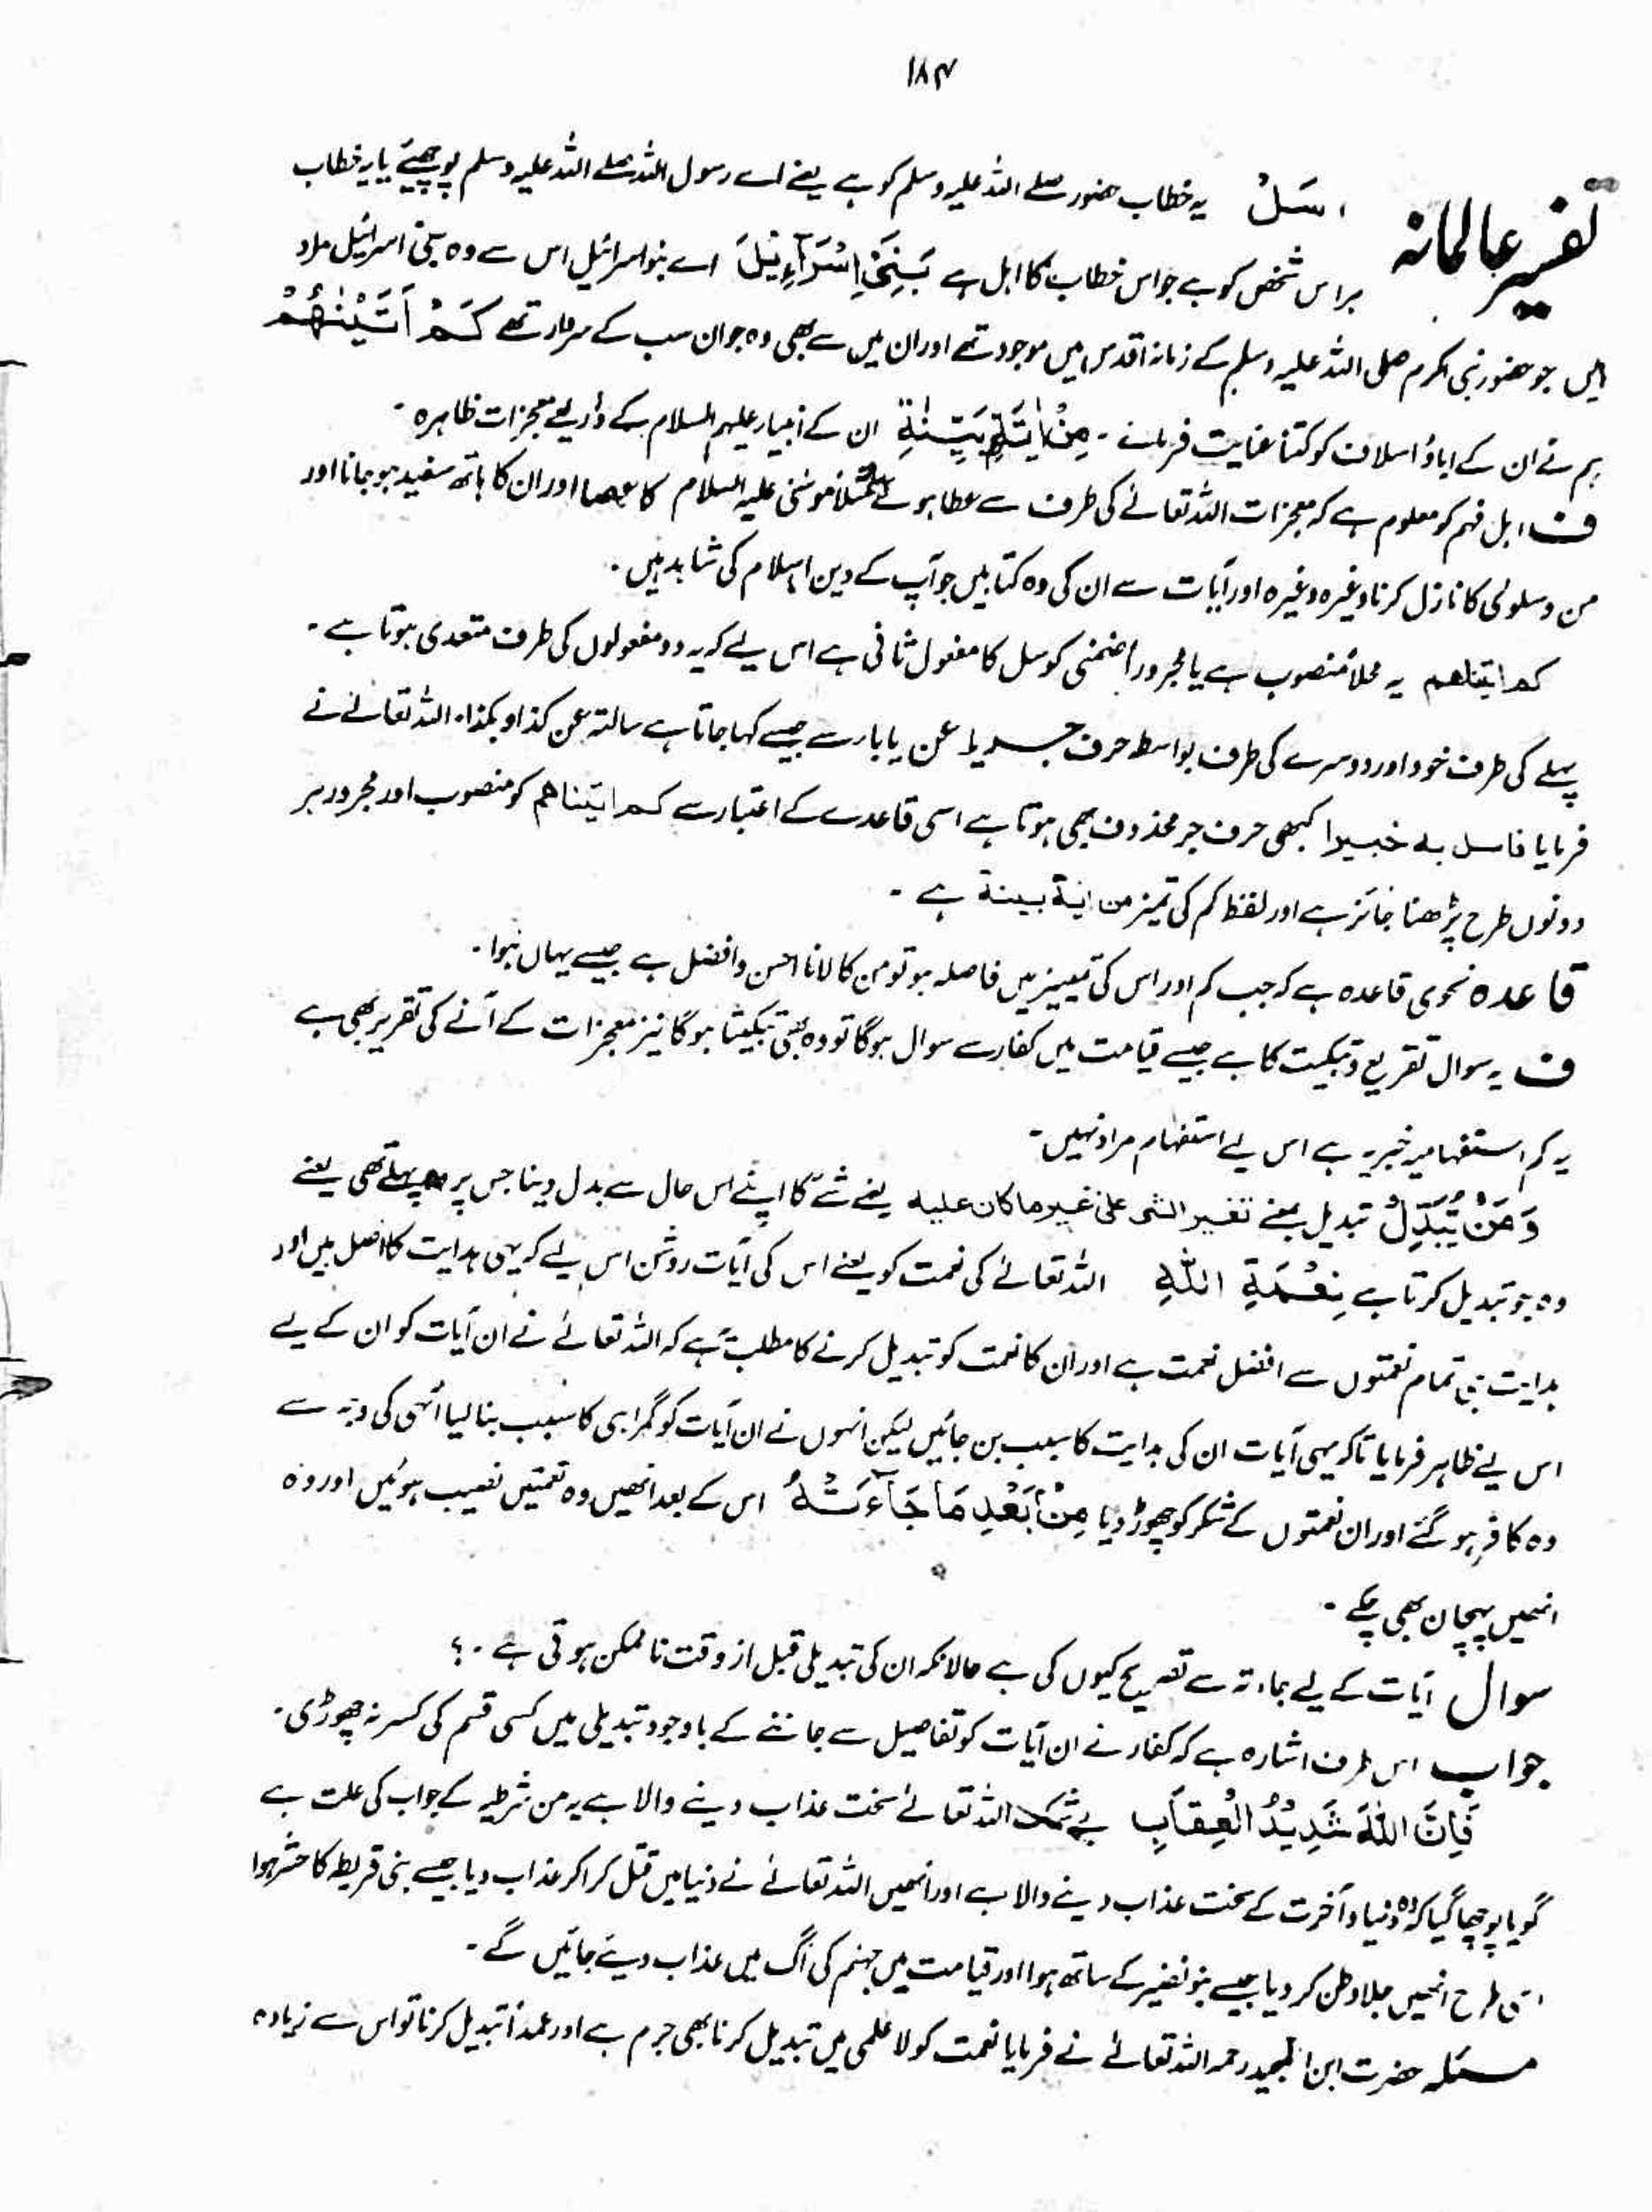 ۱۸۴
تفسیر عالمانہ
سَلْ یہ خطاب حضور صلے اللہ علیہ وسلم کو ہے یعنے اے رسول اللہ صلے اللہ علیہ وسلم پوچھیئے یا یہ خطاب
ہر اس شخص کو ہے جو اس خطاب کا اہل ہے بَنِیْٓ اِسْرَآءِیْلَ اے بنو اسرائیل اس سے وہ بنی اسرائیل مراد
ہیں جو حضور نبی اکرم صلی اللہ علیہ وسلم کے زمانہ اقدس میں موجود تھے اور ان میں سے بھی وہ جو ان سب کے سردار تھے کَمْ اٰتَیْنٰھُمْ
ہم نے ان کے اباؤ اسلاف کو کتنا عنایت فرمائے ۔ مِّنْ اٰیَةٍ بَیِّنَةٍ ان کے انبیار علیہم السلام کے ذریعے معجزات ظاہرہ ۔
ف اہل فہم کو معلوم ہے کہ معجزات اللہ تعالےٰ کی طرف سے عطا ہوئے مثلاً موسٰی علیہ السلام کا عصا اور ان کا ہاتھ سفید ہو جانا اور
من و سلویٰ کا نازل کرنا وغیرہ وغیرہ اور آیات سے ان کی وہ کتابیں جو آپ کے دین اسلام کی شاہد ہیں ۔
کم اٰتیناھم یہ محلاً منصوب ہے یا مجرور اضمنی کو سل کا مفعول ثانی ہے اس لیے کہ یہ دو مفعولوں کی طرف متعدی ہوتا ہے ۔
پہلے کی طرف خود اور دوسرے کی طرف بواسطہ حرف جر یا عن یا بار سے جیسے کہا جاتا ہے سالتہ عن کذا و بکذا ۔ اللہ تعالےٰ نے
فرمایا فاسل بہ خبیرا کبھی حرف جر محذوف بھی ہوتا ہے اسی قاعدے کے اعتبار سے کم اتیناھم کو منصوب اور مجرور ہر
دونوں طرح پڑھنا جائز ہے اور لفظ کم کی تمیز من اٰیة بینة ہے ۔
قاعدہ نحوی قاعدہ ہے کہ جب کم اور اس کی تمییز میں فاصلہ ہو تو من کا لانا احسن و افضل ہے جیسے یہاں ہوا ۔
ف یہ سوال تقریع و تبکیت کا ہے جیسے قیامت میں کفار سے سوال ہوگا تو وہ بھی تبکیتا ہوگا نیز معجزات کے آنے کی تقریر بھی ہے
یہ کم استفہامیہ خبریہ ہے اس لیے استفہام مراد نہیں ۔
وَمَنْ یُّبَدِّلْ تبدیل بمعنے تغیر الشی علیٰ غیر ما کان علیہ یعنے شے کا اپنے اس حال سے بدل دینا جس پر وہ پہلے تھی یعنے
وہ جو تبدیل کرتا ہے نِعْمَةَ اللّٰہِ اللہ تعالےٰ کی نعمت کو یعنے اس کی آیات روشن اس لیے کہ یہی ہدایت کا اصل ہیں اور
ہدایت ہی تمام نعمتوں سے افضل نعمت ہے اور ان کا نعمت کو تبدیل کرنے کا مطلب یہ ہے کہ اللہ تعالےٰ نے ان آیات کو ان کے لیے
اس لیے ظاہر فرمایا تاکہ یہی آیات ان کی ہدایت کا سبب بن جائیں لیکن انہوں نے ان آیات کو گمراہی کا سبب بنا لیا انہی کی وجہ سے
وہ کافر ہو گئے اور ان نعمتوں کے شکر کو چھوڑ دیا مِنْ بَعْدِ مَا جَآءَتْہُ اس کے بعد انھیں وہ نعمتیں نصیب ہوئیں اور وہ
انھیں پہچان بھی چکے ۔
سوال آیات کے لیے بماءتہ سے تصریح کیوں کی ہے حالانکہ ان کی تبدیلی قبل از وقت نا ممکن ہوتی ہے ۔ ؟
جواب اس طرف اشارہ ہے کہ کفار نے ان آیات کو تفاصیل سے جاننے کے باوجود تبدیلی میں کسی قسم کی کسر نہ چھوڑی ۔
فَاِنَّ اللّٰہَ شَدِیْدُ الْعِقَابِ بے شک اللہ تعالےٰ سخت عذاب دینے والا ہے یہ من شرطیہ کے جواب کی علت ہے
گویا پوچھا گیا کہ وہ دنیا و آخرت کے سخت عذاب دینے والا ہے اور انھیں اللہ تعالےٰ نے دنیا میں قتل کرا کر عذاب دیا جیسے بنی قریظہ کا حشر ہوا
اسی طرح انھیں جلا وطن کر دیا جیسے بنو نضیر کے ساتھ ہوا اور قیامت میں جہنم کی آگ میں عذاب دیئے جائیں گے ۔
مسئلہ حضرت ابن التمجید رحمہ اللہ تعالےٰ نے فرمایا نعمت کو لا علمی میں تبدیل کرنا بھی جرم ہے اور عمداً تبدیل کرنا تو اس سے زیادہ